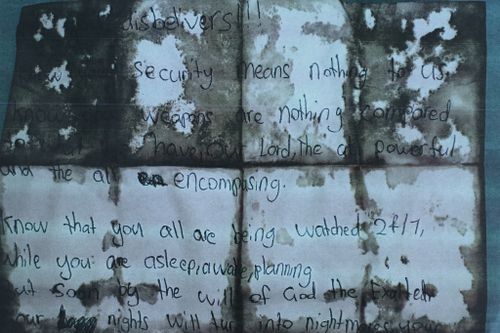 disbelivers!!!
security means nothing to us.
know weapons are nothing compared
have, our Lord, the all powerful
and the all encompasing.
Know that you all are being watched 24/7,
while you are asleep, awake, planning
but soon by the will of God the Exalted
your nights will turn into nightmares, your